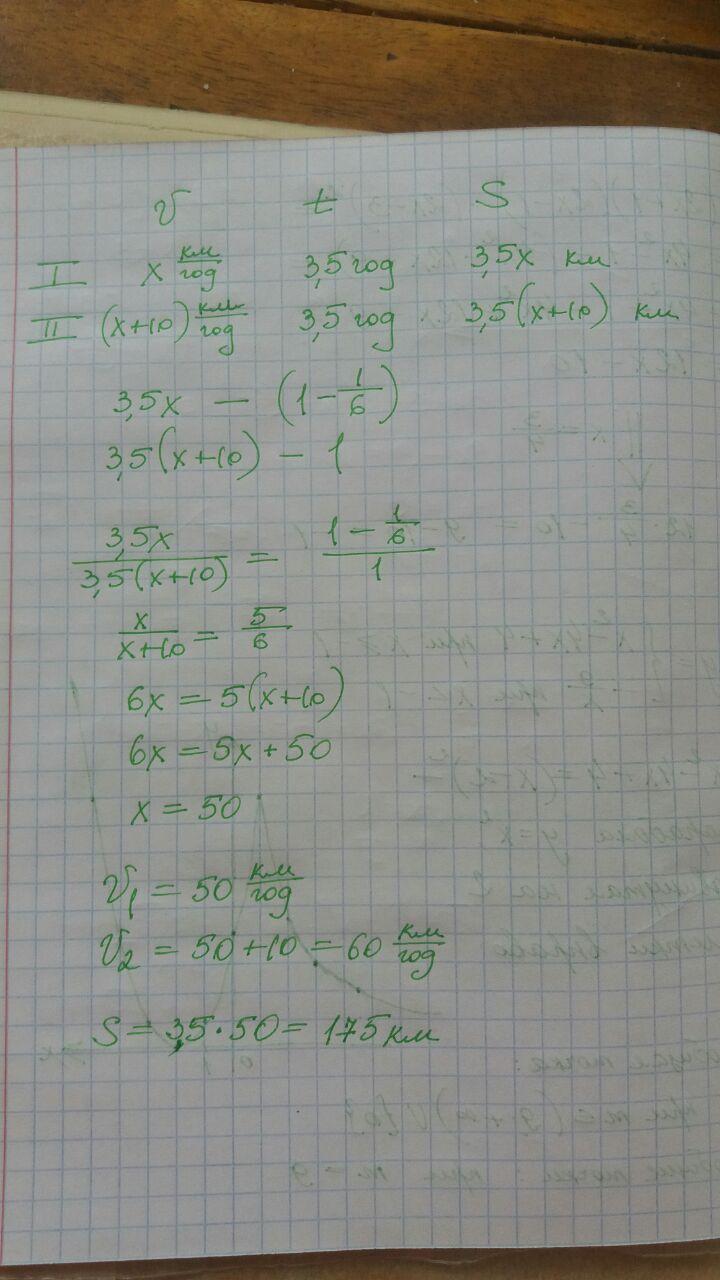 V t S
I x км/год 3,5 год 3,5x км
II (x+10) км/год 3,5 год 3,5(x+10) км
3,5x — (1 - 1/6)
3,5(x+10) - 1
3,5x / 3,5(x+10) = (1 - 1/6) / 1
x / x+10 = 5/6
6x = 5(x+10)
6x = 5x + 50
x = 50
V1 = 50 км/год
V2 = 50+10 = 60 км/год
S = 3,5·50 = 175 км